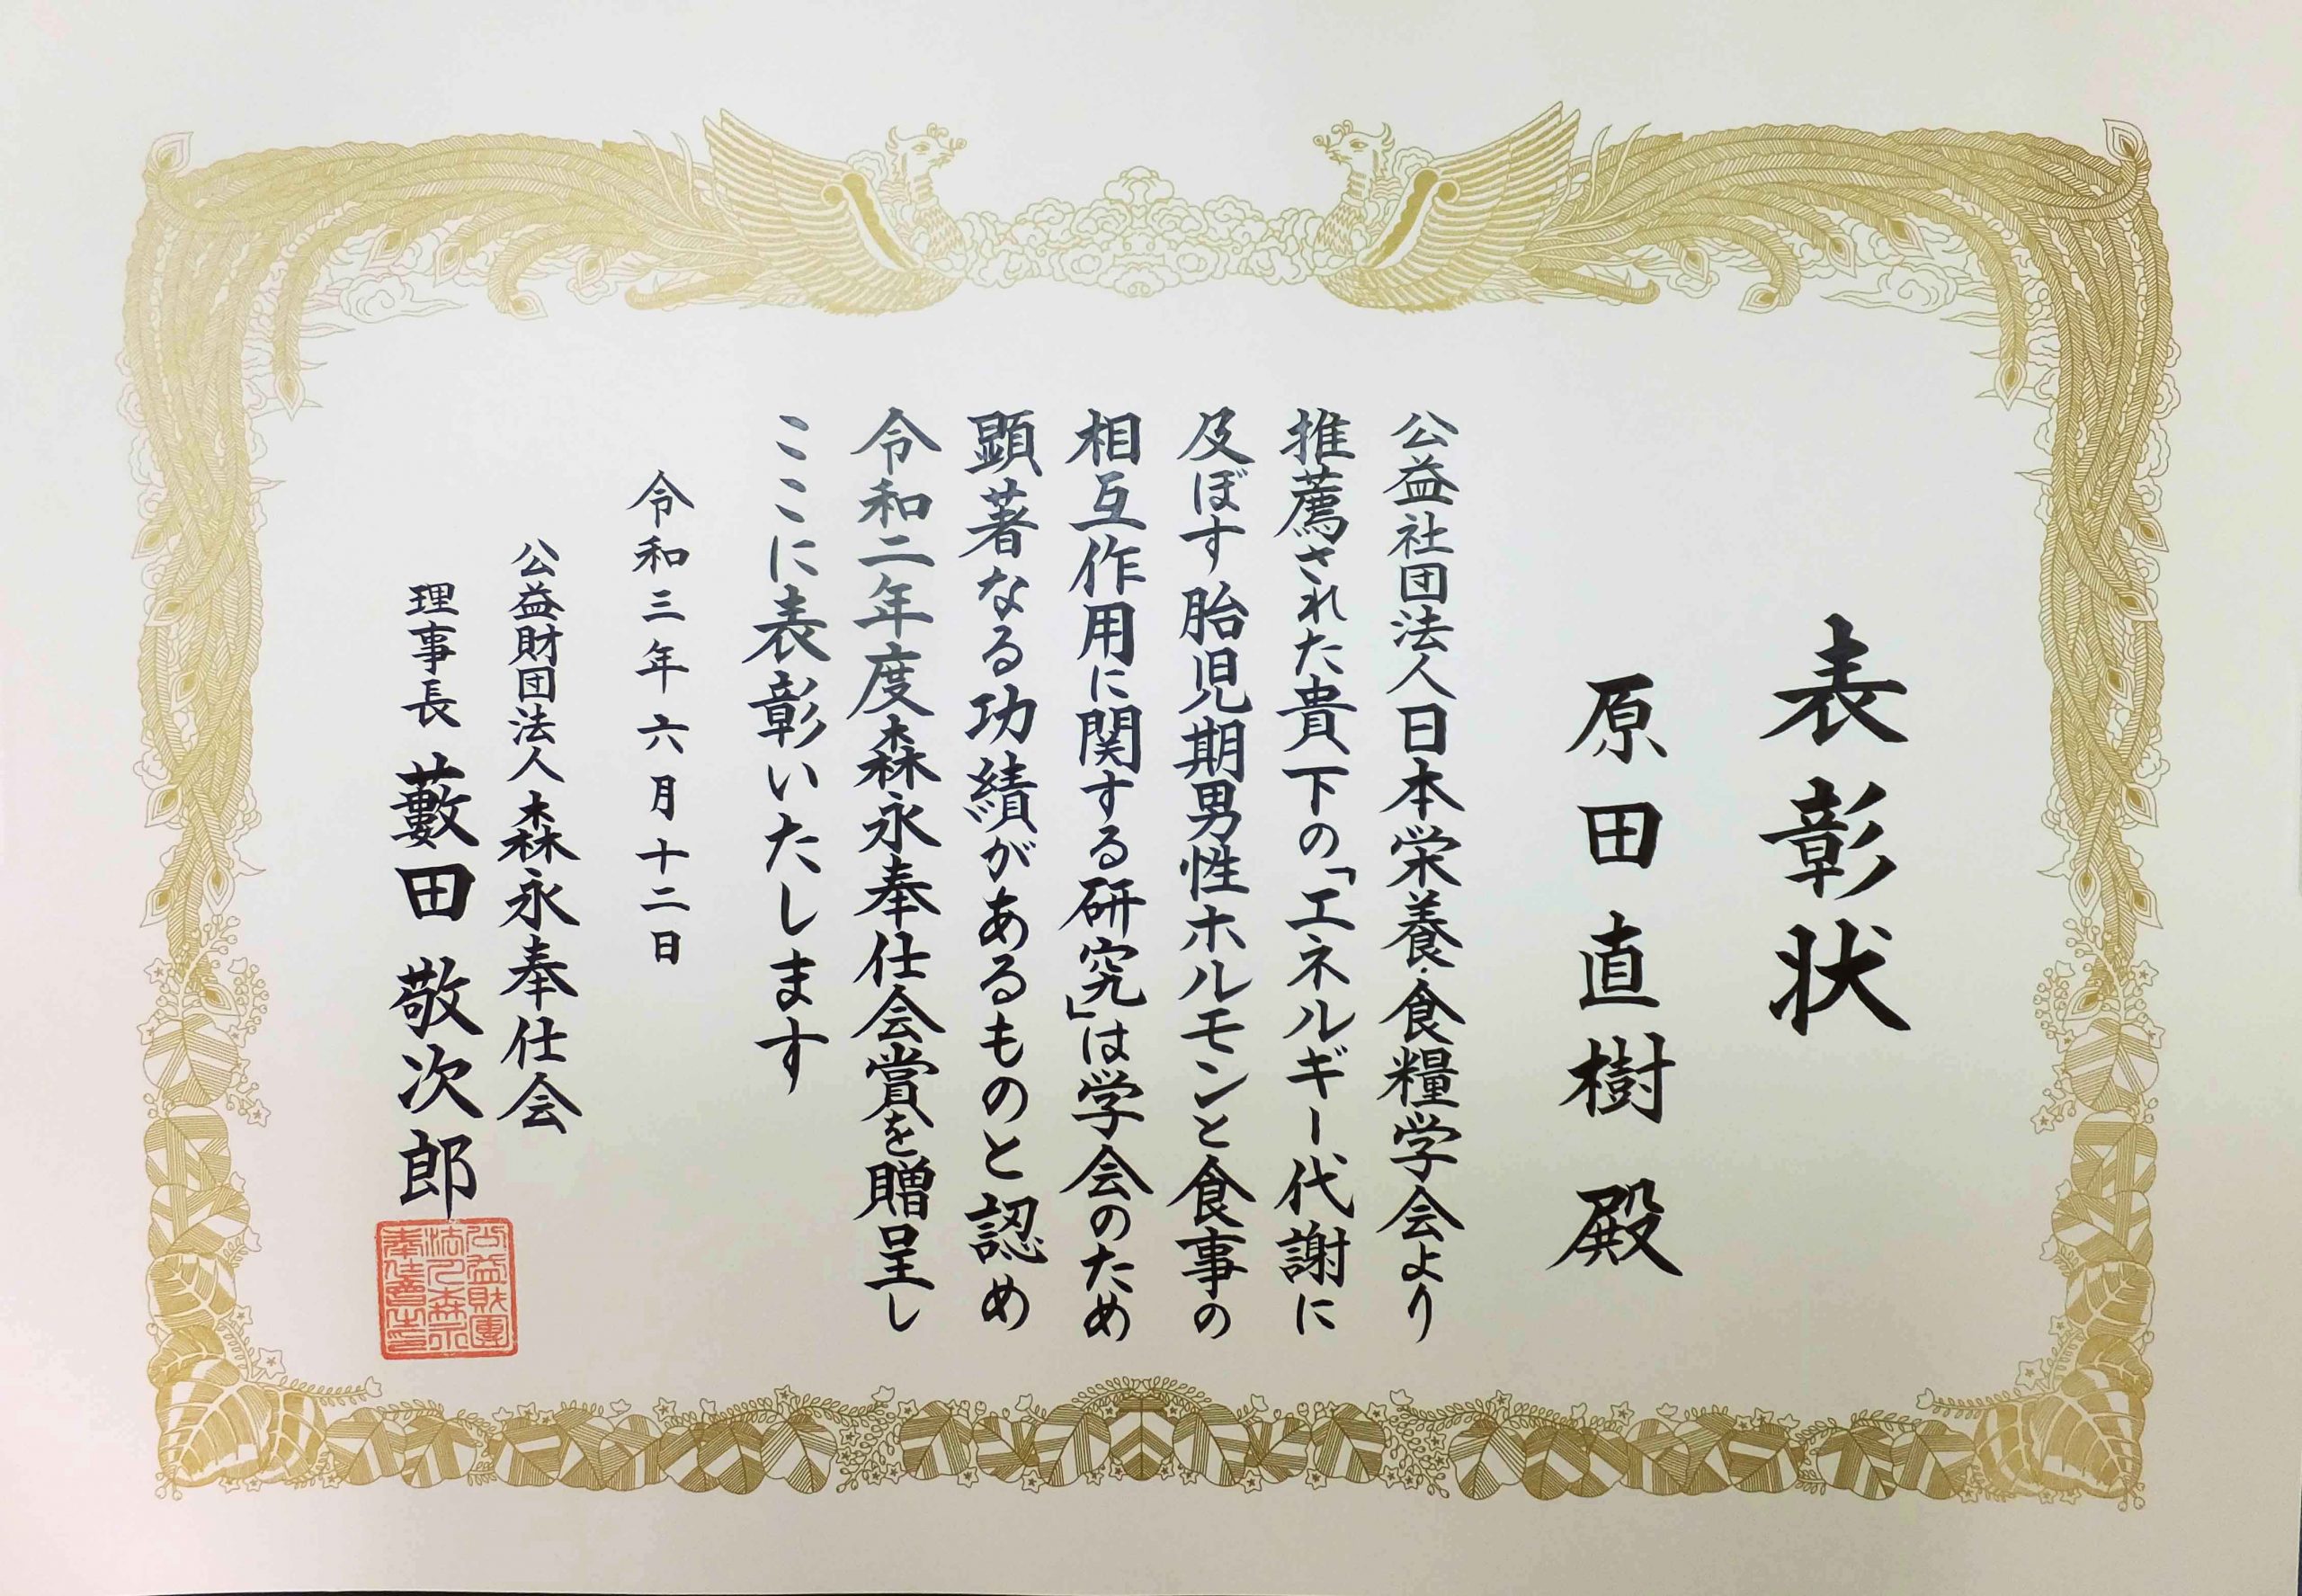 表彰状
原田直樹 殿
公益社団法人日本栄養・食糧学会より
推薦された貴下の「エネルギー代謝に
及ぼす胎児期男性ホルモンと食事の
相互作用に関する研究」は学会のため
顕著なる功績があるものと認め
令和二年度森永奉仕会賞を贈呈し
ここに表彰いたします
令和三年六月十二日
公益財団法人 森永奉仕会
理事長 藪田敬次郎
公益財團
法人森永
奉仕會之印